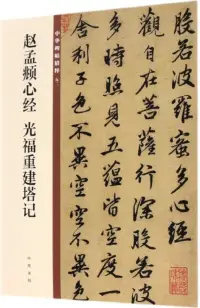 赵孟頫心经 光福重建塔记
中华碑帖精粹
中华书局
般若波羅蜜多心經
觀自在菩薩行深般若
多時照見五蘊皆空度一
舍利子色不異空空不異